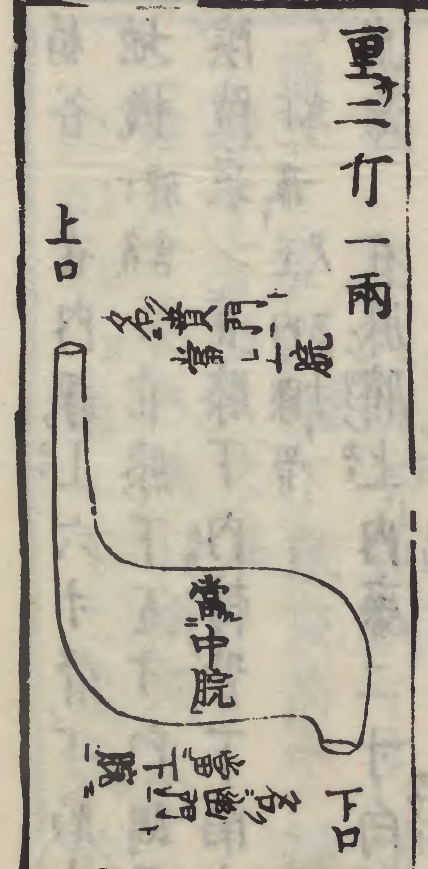 重二斤一兩
上口
名賁門
當上脘
當中脘
名幽門
當下脘
下口